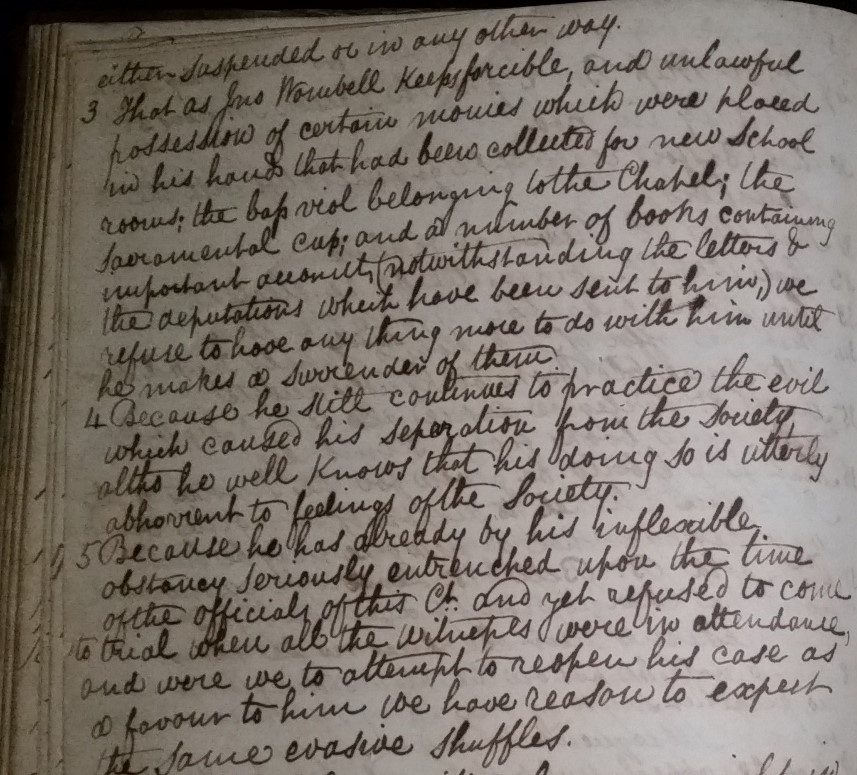 either suspended or in any other way.
3 That as Jno Wombell Keeps forcible, and unlawful
possession of certain monies which were placed
in his hands that had been collected for new School
rooms; the bass viol belonging to the Chapel; the
Sacramental cup; and a number of books containing
important accounts, (notwithstanding the letters &
the deputations which have been sent to him,) we
refuse to have any thing more to do with him until
he makes a surrender of them
4 Because he still continues to practice the evil
which caused his separation from the Society,
altho he well Knows that his doing so is utterly
abhorrent to feelings of the Society.
5 Because he has already by his inflexible
obstancy seriously entrenched upon the time
of the officials of this Ch. and yet refused to come
to trial when all the witnesses were in attendance,
and were we to attempt to reopen his case as
a favour to him we have reason to expect
the same evasive shuffles.